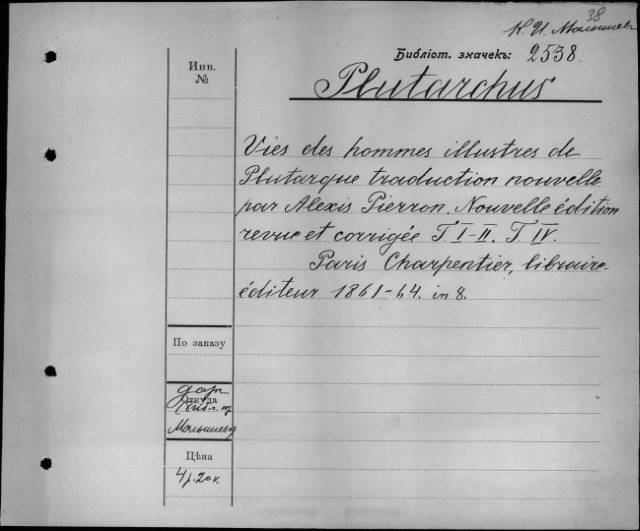 38
К. И. Малышевъ
Библіот. значекъ: 2538
Инв.
№
Plutarchus
Vies des hommes illustres de
Plutarque traduction nouvelle
par Alexis Pierron. Nouvelle édition
revue et corrigée T I-II. T IV.
Paris Charpentier, libraire-
éditeur 1861-64. in 8.
По заказу
дар
Откуда
Малышева
Цѣна
4р. 20к.